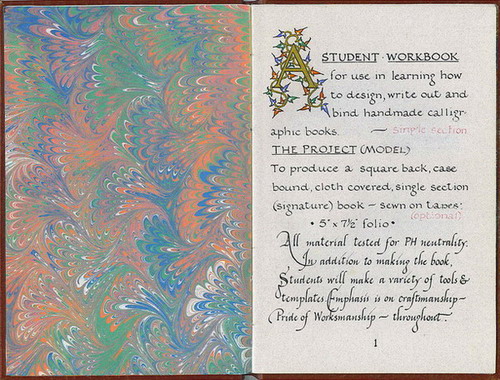 A STUDENT · WORKBOOK
for use in learning how
to design, write out and
bind handmade calligr-
aphic books. — simple section
THE PROJECT (MODEL)
To produce a square back, case
bound, cloth covered, single section
(signature) book – sewn on tapes:
(optional)
• 5" x 7½" folio •
All material tested for PH neutrality.
In addition to making the book,
Students will make a variety of tools &
templates. Emphasis is on craftmanship –
Pride of Worksmanship – throughout.
1